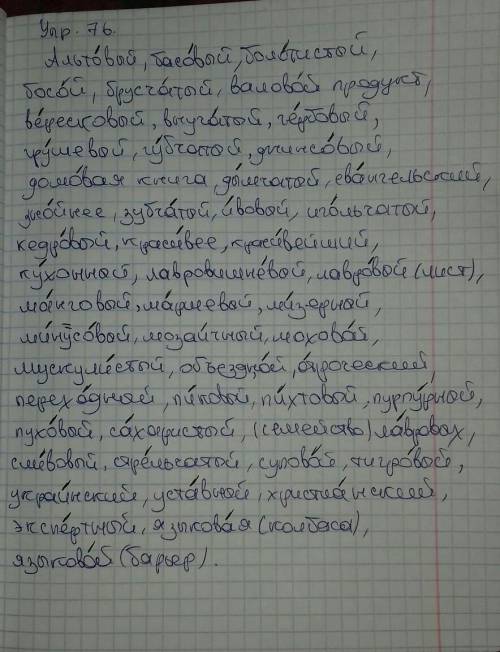 Упр. 76.
Альто́вый, басо́вый, боло́тистый,
босо́й, брусча́тый, валово́й продукт,
ве́ресковый, внуча́тый, ге́рбовый,
гру́шевый, гу́бчатый, джинсо́вый,
домо́вая книга, ды́мчатый, ева́нгельский,
зно́йнее, зубча́тый, и́вовый, иго́льчатый,
кедро́вый, краси́вее, краси́вейший,
ку́хонный, лавровишнёвый, лавро́вый (лист),
ма́нговый, ма́рлевый, ми́зерный,
ми́нусовый, мозаи́чный, мохово́й,
мускули́стый, объездно́й, о́троческий,
перехо́дный, пи́ковый, пи́хтовый, пурпу́рный,
пухо́вый, са́харистый, (семейство) ла́вровых,
сли́вовый, стре́льчатый, сулово́й, тигро́вый,
украи́нский, уста́вный, христиа́нский,
экспе́ртный, языкова́я (колбаса),
языково́й (барьер).